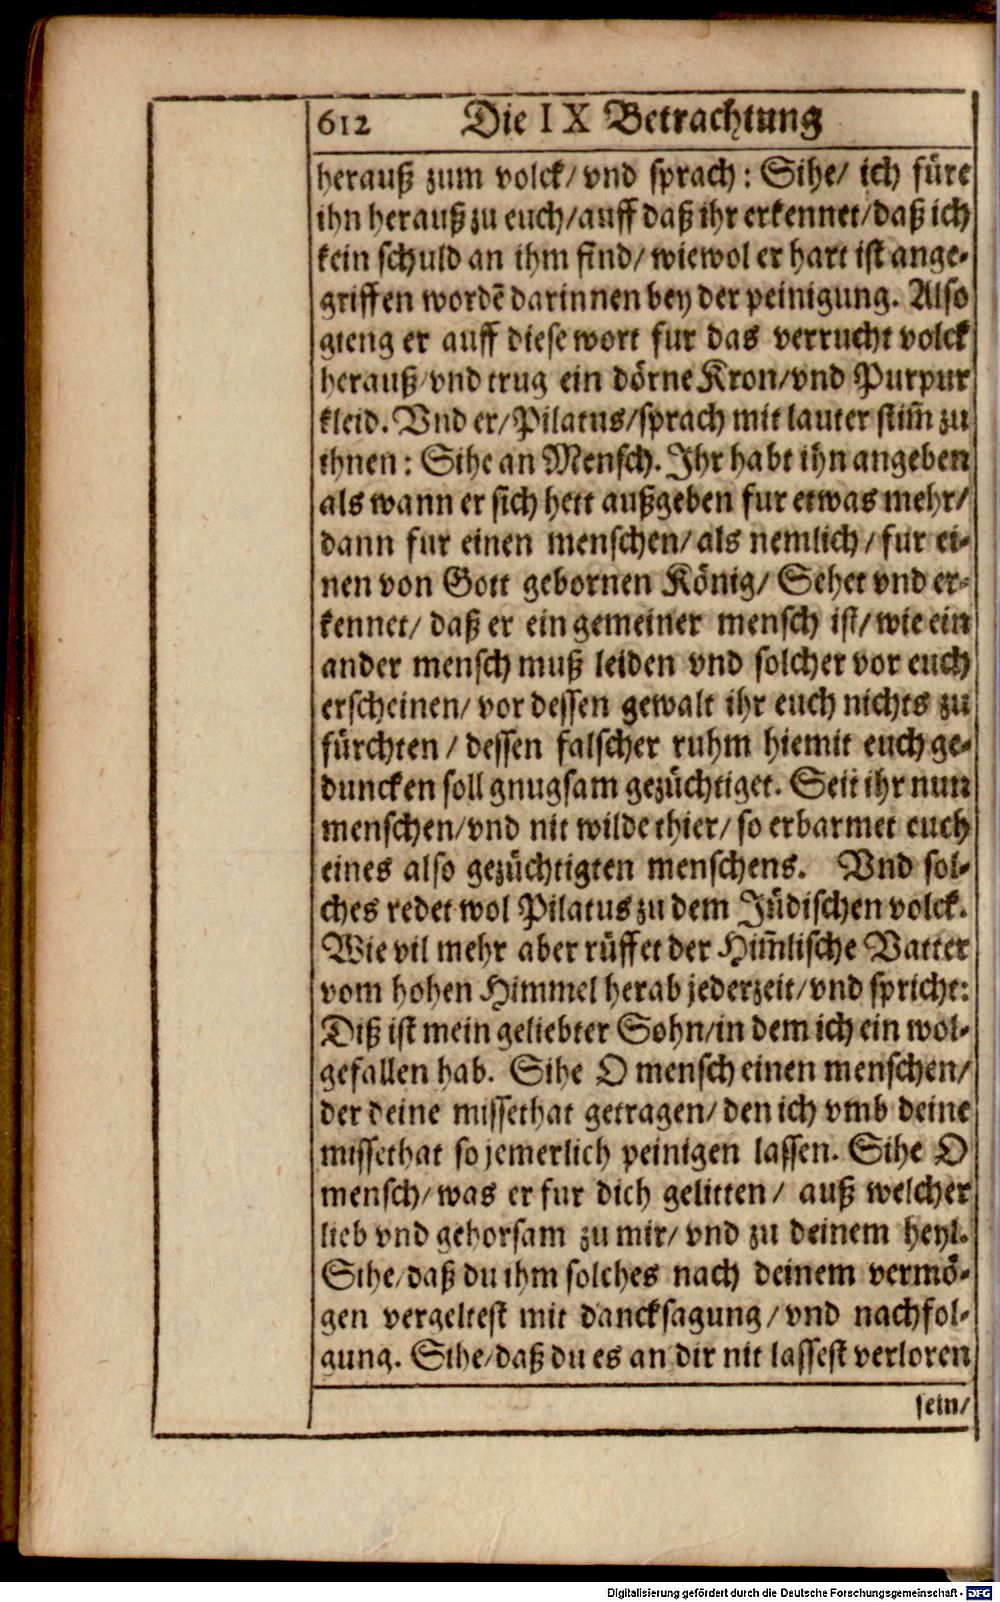 612 Die IX Betrachtung
herauß zum volck/ vnd sprach: Sihe/ ich füre
ihn herauß zu euch/ auff daß ihr erkennet/ daß ich
kein schuld an ihm find/ wiewol er hart ist ange-
griffen wordē darinnen bey der peinigung. Also
gieng er auff diese wort fur das verrucht volck
herauß/ vnd trug ein dörne Kron/ vnd Purpur
kleid. Vnd er/ Pilatus/ sprach mit lauter stim̄ zu
ihnen: Sihe an Mensch. Ihr habt ihn angeben
als wann er sich hett außgeben fur etwas mehr/
dann fur einen menschen/ als nemlich/ fur ei-
nen von Gott gebornen König/ Sehet vnd er-
kennet/ daß er ein gemeiner mensch ist/ wie ein
ander mensch muß leiden vnd solcher vor euch
erscheinen/ vor dessen gewalt ihr euch nichts zu
fürchten/ dessen falscher ruhm hiemit euch ge-
duncken soll gnugsam gezüchtiget. Seit ihr nun
menschen/ vnd nit wilde thier/ so erbarmet euch
eines also gezüchtigten menschens. Vnd sol-
ches redet wol Pilatus zu dem Jüdischen volck.
Wie vil mehr aber rüffet der Him̄lische Vatter
vom hohen Himmel herab jederzeit/ vnd spricht:
Diß ist mein geliebter Sohn/ in dem ich ein wol-
gefallen hab. Sihe O mensch einen menschen/
der deine missethat getragen/ den ich vmb deine
missethat so jemerlich peinigen lassen. Sihe O
mensch/ was er fur dich gelitten/ auß welcher
lieb vnd gehorsam zu mir/ vnd zu deinem heyl.
Sihe/ daß du ihm solches nach deinem vermö-
gen vergeltest mit dancksagung/ vnd nachfol-
gung. Sihe/ daß du es an dir nit lassest verloren
sein/
Digitalisierung gefördert durch die Deutsche Forschungsgemeinschaft - DFG